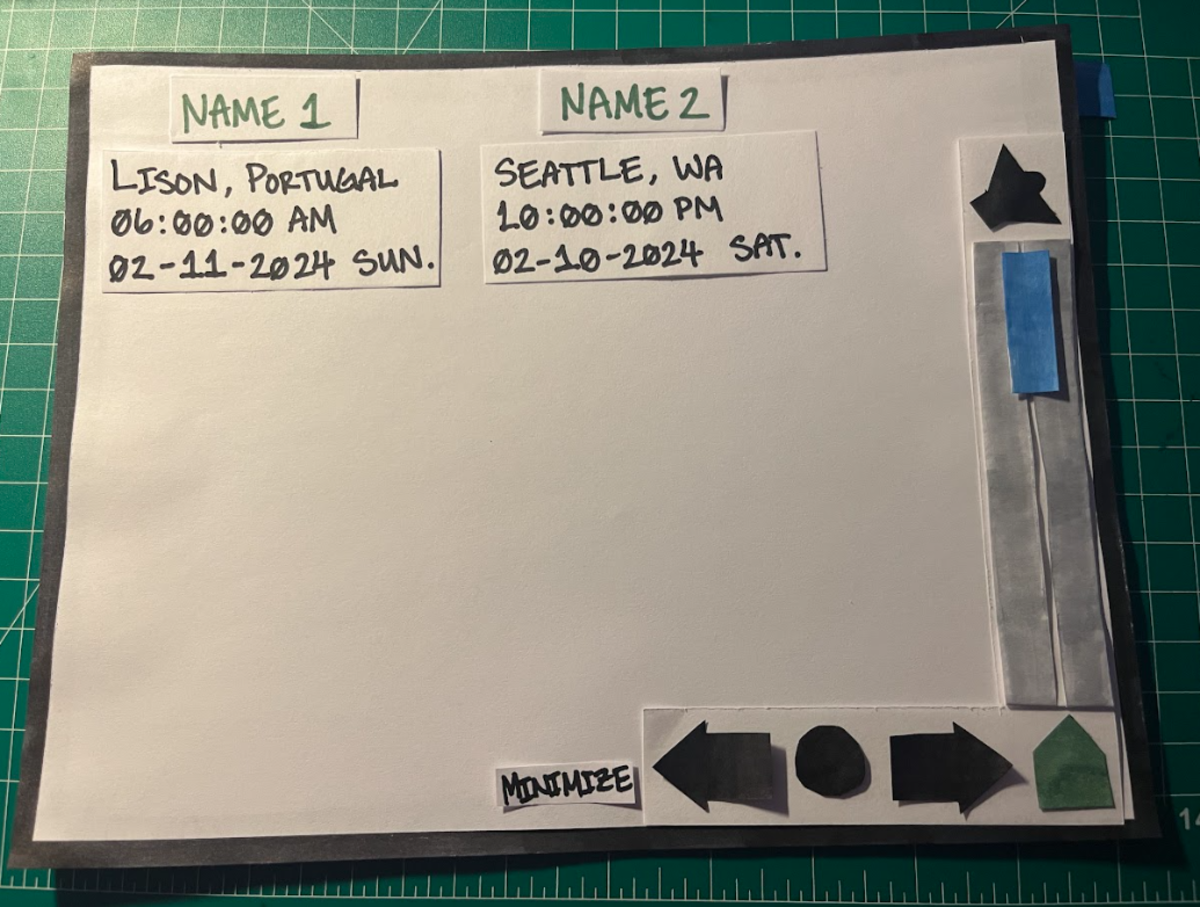 NAME 1
LISON, PORTUGAL
06:00:00 AM
02-11-2024 SUN.
NAME 2
SEATTLE, WA
10:00:00 PM
02-10-2024 SAT.
MINIMIZE